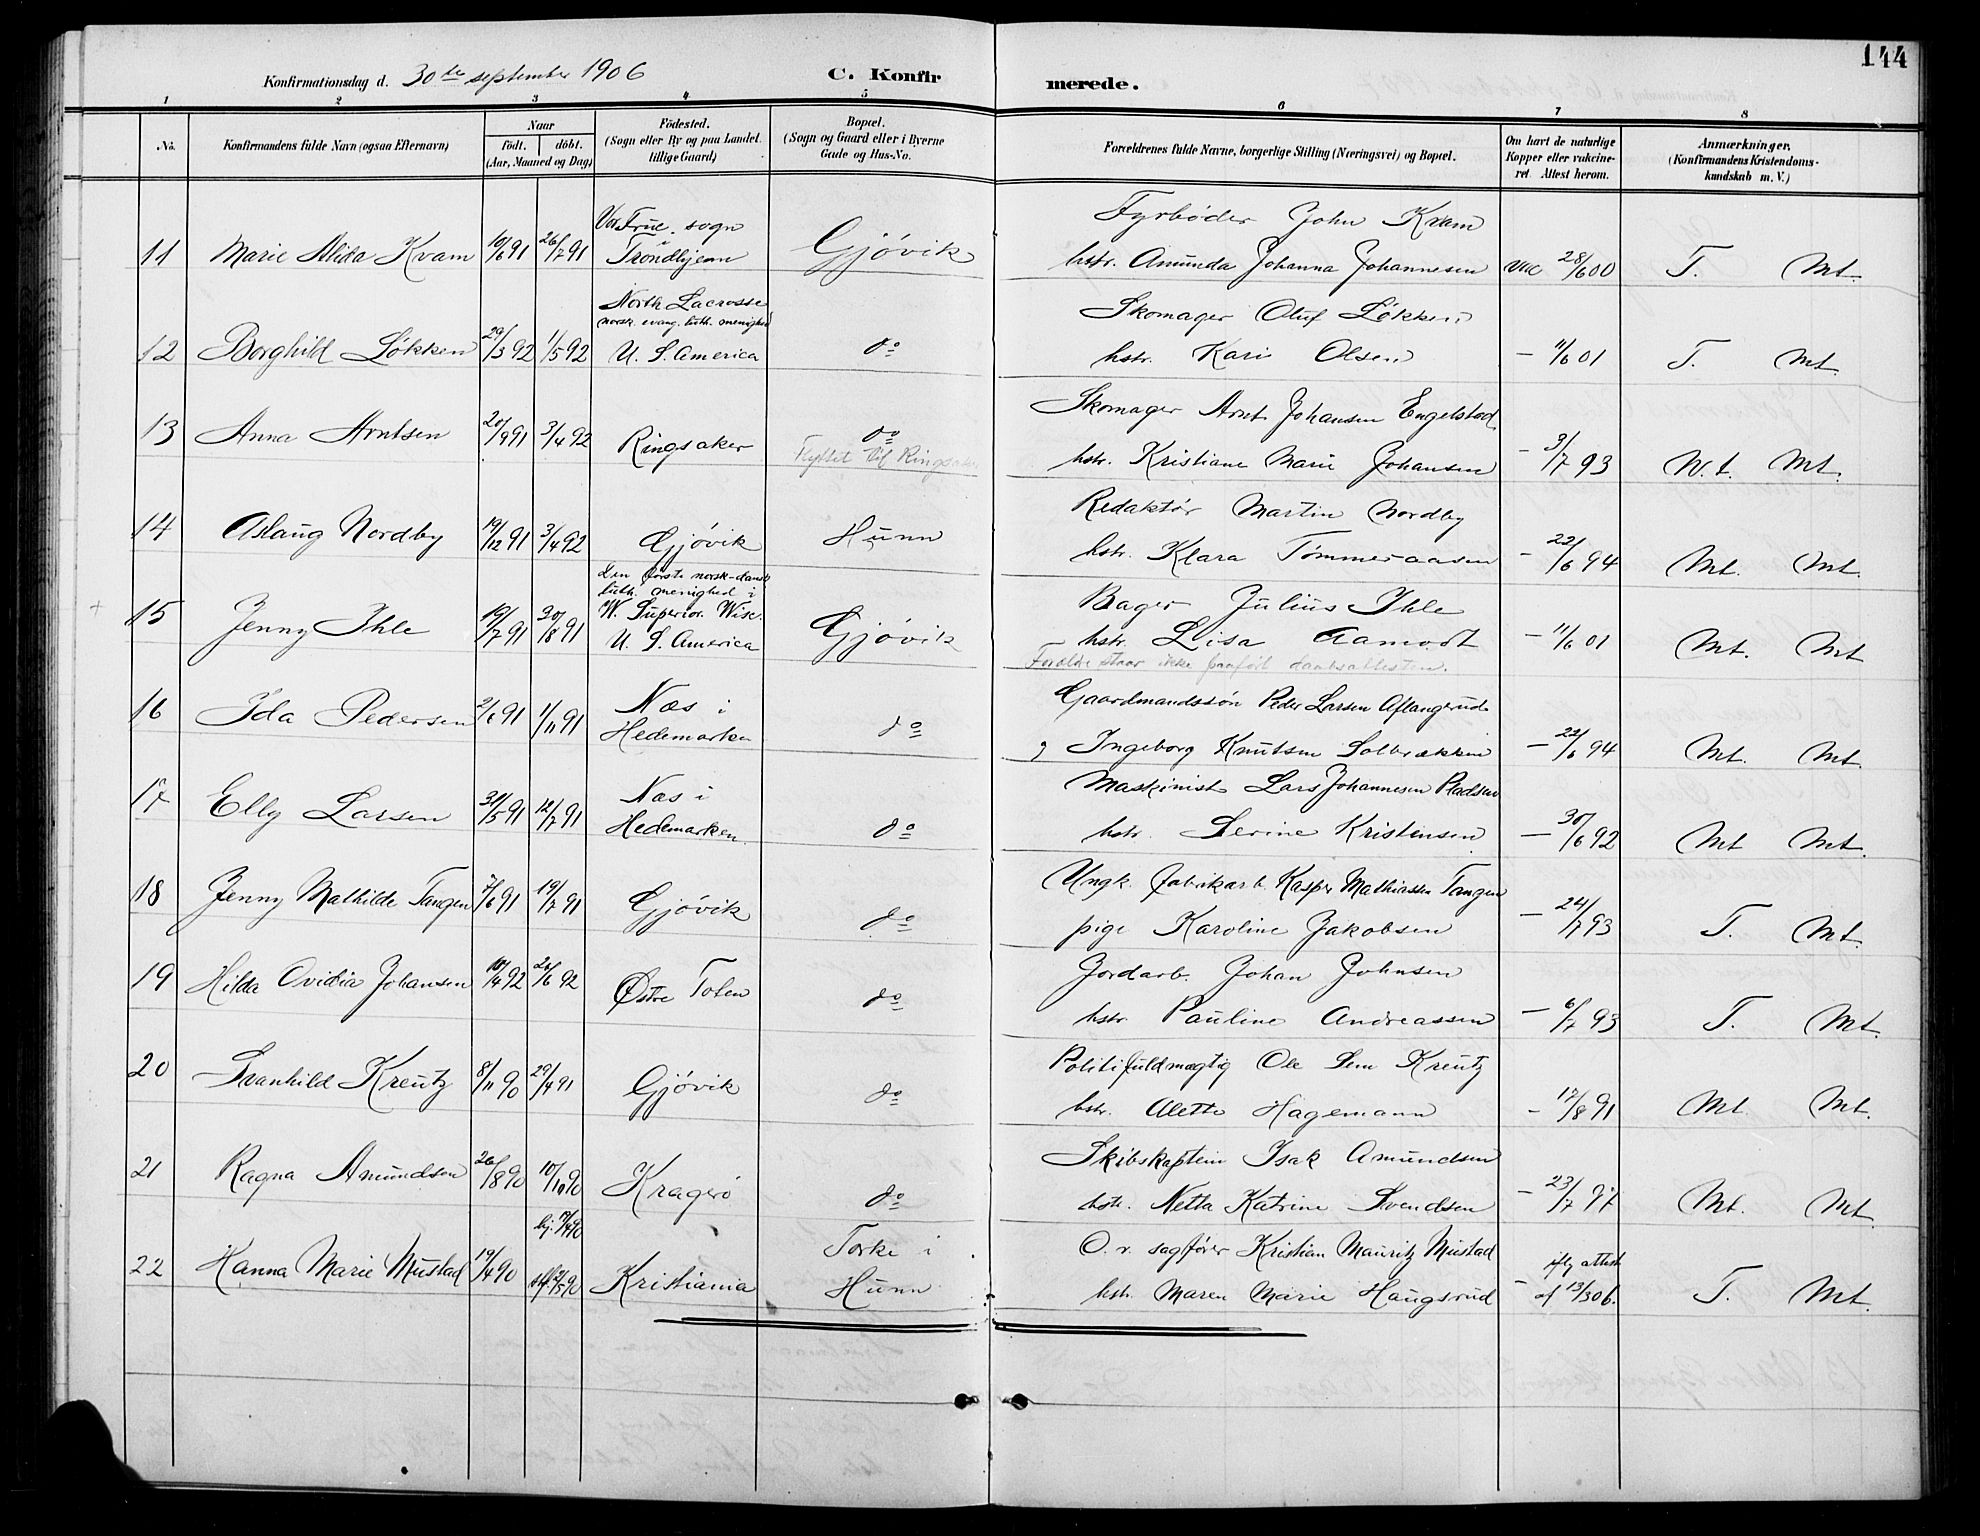 144
Konfirmationsdag d. 30te september 1906 C. Konfirmerede.
1 2 3 4 5 6 7 8
No. Konfirmandens fulde Navn (ogsaa Efternavn) Naar født. døbt. (Aar, Maaned og Dag) Fødested. (Sogn eller By og paa Landet tillige Gaard) Bopæl. (Sogn og Gaard eller i Byerne Gade og Hus-No. Forældrenes fulde Navne, borgerlige Stilling (Næringsvei) og Bopæl. Om havt de naturlige Kopper eller vakcineret. Attest herom. Anmærkninger. (Konfirmandens Kristendomskundskab m. V.)
Vor Frue sogn Fyrbøder John Kvam
11 Marie Alida Kvam 10/6 91 26/7 91 i Trondhjem Gjøvik hstr. Amunda Johanna Johannesen vac 28/6 00 T. Mt.
North Lacrosse norsk evang. luth. menighed Skomager Oluf Løkken
12 Borghild Løkken 29/3 92 1/5 92 U. S. America do hstr. Kari Olsen — 11/6 01 T. Mt.
Skomager Arnt Johansen Engelstad
13 Anna Arntsen 20/9 91 3/4 92 Ringsaker do Flyttet til Ringsaker hstr. Kristiane Marie Johansen — 3/7 93 N. t. Mt.
Redaktør Martin Nordby
14 Aslaug Nordby 19/12 91 3/4 92 Gjøvik Hunn hstr. Klara Tømmeraasen — 22/6 94 Mt. Mt.
Den første norsk-dansk luth. menighed i W. Superior. Wisc. Bager Julius Ihle
15 Jenny Ihle 19/7 91 30/8 91 U. S. America Gjøvik hstr. Lisa Aamodt — 11/6 01 Mt. Mt
Forældre staar ikke paaført daabsattesten.
Næs i Gaardmandssøn Peder Larsen Aflangerud
16 Ida Pedersen 2/6 91 1/11 91 Hedemarken do Ingeborg Knutsen Solbrækken — 22/6 94 Mt. Mt.
Næs i Maskinist Lars Johannesen Pladsen
17 Elly Larsen 31/5 91 12/7 91 Hedemarken do hstr. Serine Kristensen — 30/6 92 Mt Mt.
Ungk. fabrikarb. Kasper Mathiassen Tangen
18 Jenny Mathilde Tangen 7/6 91 19/7 91 Gjøvik do pige Karoline Jakobsen — 24/7 93 T. Mt.
Jordarb. Johan Johnsen
19 Hilda Ovidia Johansen 10/4 92 26/6 92 Østre Toten do hstr. Pauline Andreassen — 6/7 93 T. Mt.
Politifuldmægtig Ole Sem Kreutz
20 Svanhild Kreutz 8/11 90 29/4 91 Gjøvik do hstr. Alette Hagemann — 17/8 91 Mt. Mt.
Skibskaptein Isak Amundsen
21 Ragna Amundsen 26/8 90 10/10 90 Kragerø do hstr. Netta Katrine Svendsen — 23/7 97 Mt. Mt.
hj. 17/4 90 Torke i O. r. sagfører Kristian Mauritz Mustad iflg attest
22 Hanna Marie Mustad 19/4 90 Kristiania Hunn hstr. Maren Marie Haugsrud — af 13/3 06. T. Mt.